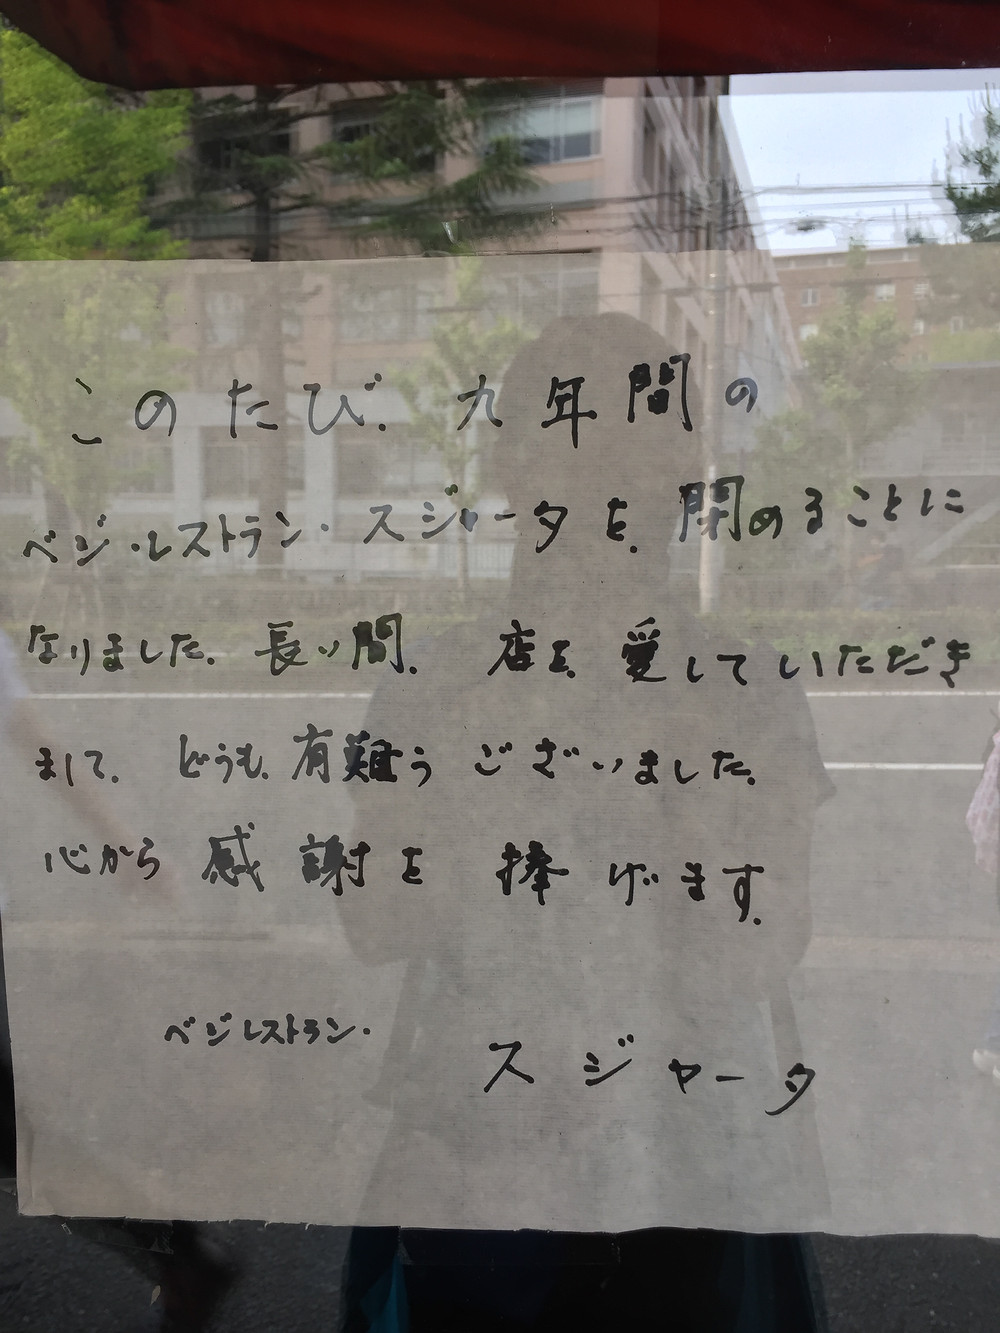 このたび、九年間の
ベジ・レストラン・スジャータを、閉めることに
なりました。長い間、店を、愛していただき
まして、どうも、有難うございました。
心から感謝を捧げます。
ベジレストラン・
スジャータ